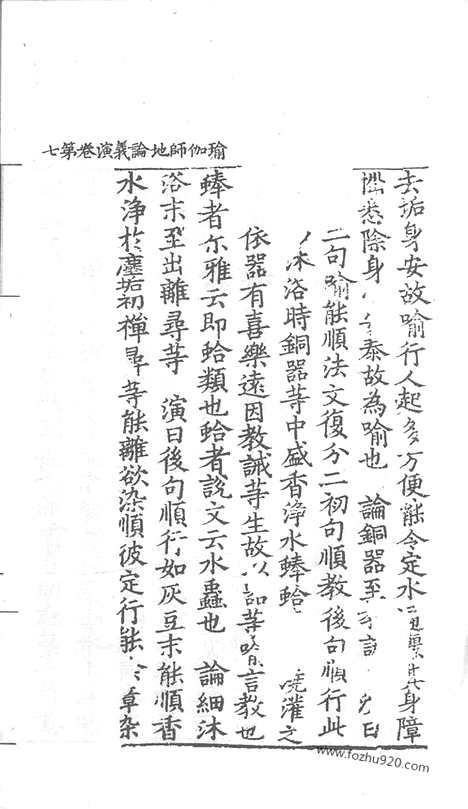 瑜伽師地論義演卷第七
去詬身安故喻行人起多方便能令定水身障
悉除身泰故為喻也 論銅器至
二句喻能順法文復分二初句順教後句順行此
沐浴時銅器等中盛香淨水蜯蛤澆灌之
依器有喜樂遠因教誡等生故以詔等喻言教也
蜯者尔雅云即蛤類也蛤者說文云水蟲也 論細沐
浴末至出離尋等 演曰後句順行如灰豆末能順香
水淨於塵垢初禪尋等能離欲染順彼定行能障染
www.fozhu920.com